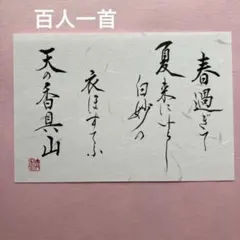 百人一首
春過ぎて
夏来にけらし
白妙の
衣ほすてふ
天の香具山